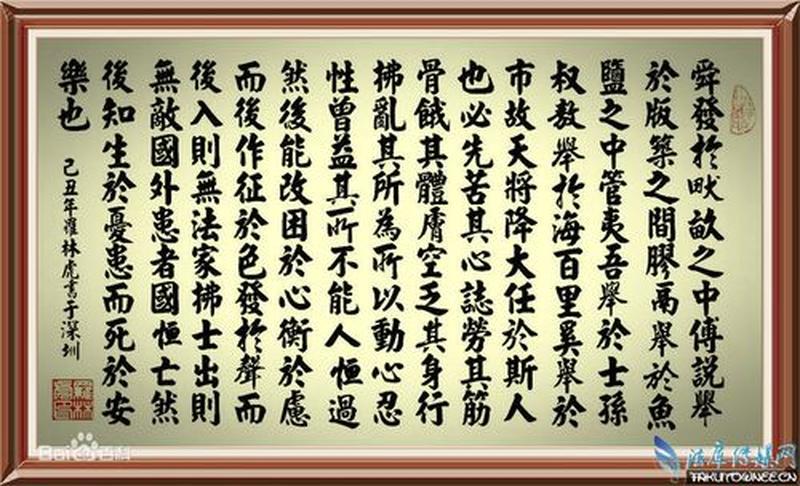 舜發於畎畝之中傅說舉
於版築之間膠鬲舉於魚
鹽之中管夷吾舉於士孫
叔敖舉於海百里奚舉於
市故天將降大任於斯人
也必先苦其心誌勞其筋
骨餓其體膚空乏其身行
拂亂其所為所以動心忍
性曾益其所不能人恒過
然後能改困於心衡於慮
而後作征於色發於聲而
後入則無法家拂士出則
無敵國外患者國恒亡然
後知生於憂患而死於安
樂也
己丑年羅林虎書于深圳
Baidu百科